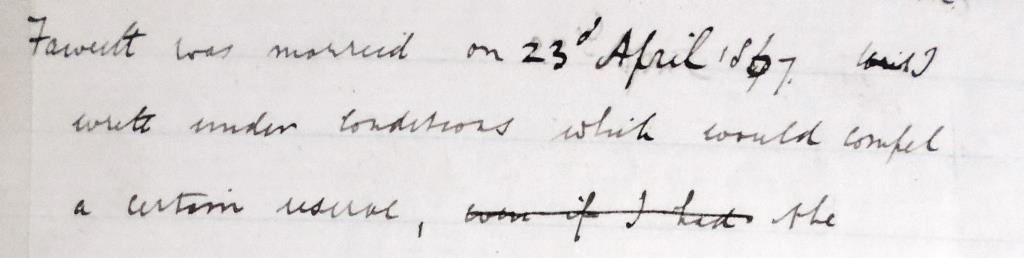 Fawcett was married on 23d April 1867. I
write under conditions which would compel
a certain reserve, even if I had the